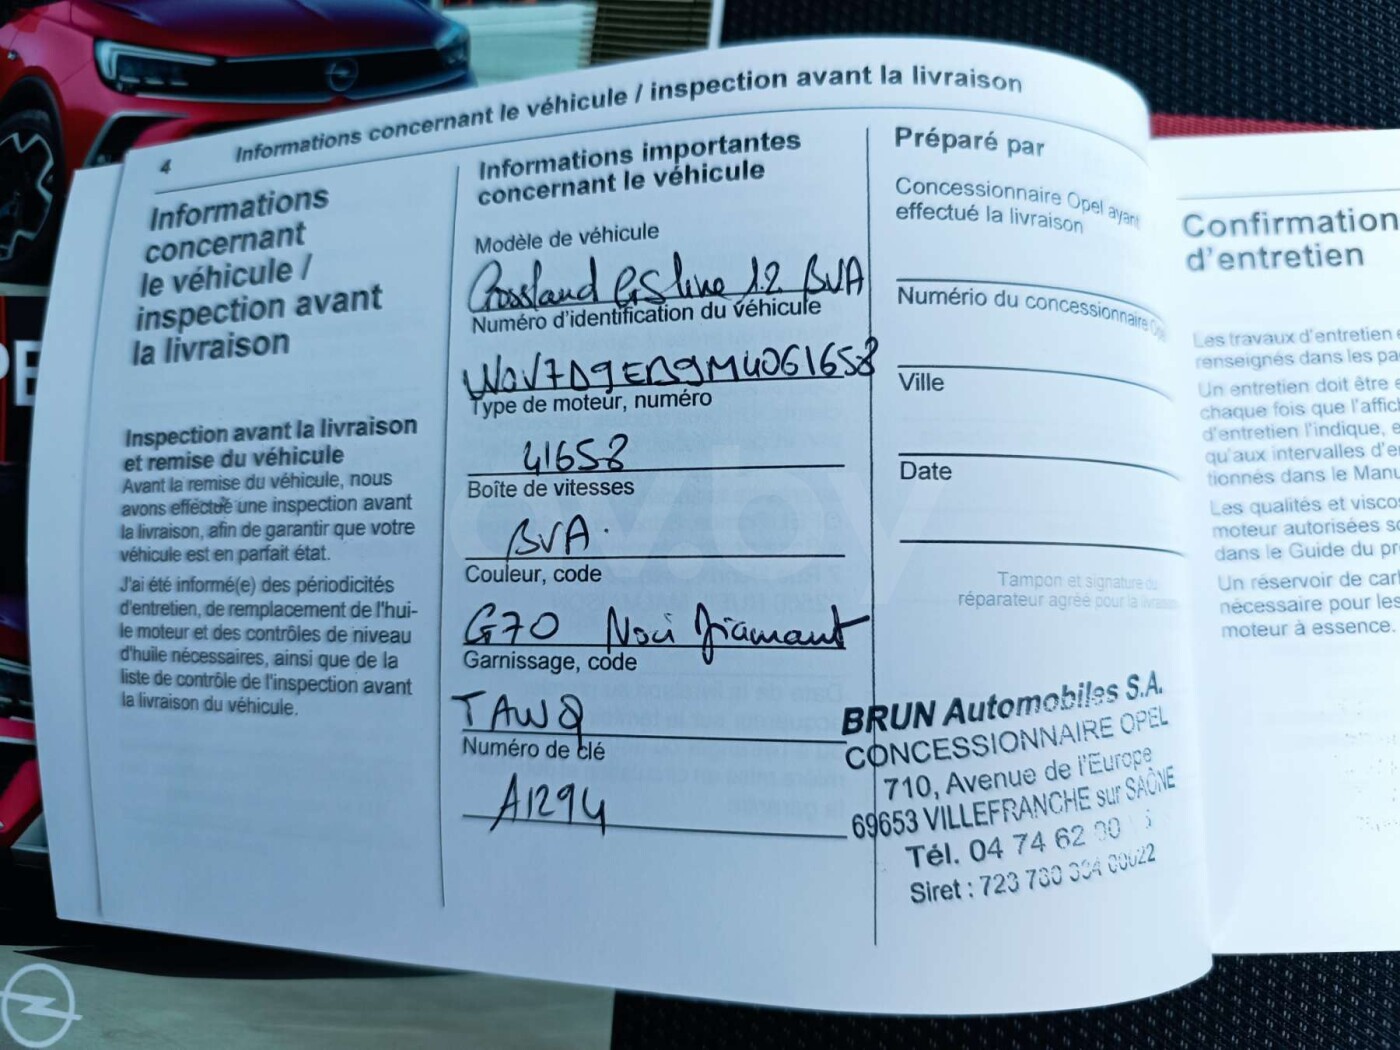 4
Informations concernant le véhicule / inspection avant la livraison
Informations
concernant
le véhicule /
inspection avant
la livraison
Inspection avant la livraison
et remise du véhicule
Avant la remise du véhicule, nous
avons effectué une inspection avant
la livraison, afin de garantir que votre
véhicule est en parfait état.
J'ai été informé(e) des périodicités
d'entretien, de remplacement de l'hui-
le moteur et des contrôles de niveau
d'huile nécessaires, ainsi que de la
liste de contrôle de l'inspection avant
la livraison du véhicule.
Informations importantes
concernant le véhicule
Modèle de véhicule
Crossland GS line 1.2 BVA
Numéro d'identification du véhicule
W0V7D9EB9M4061658
Type de moteur, numéro
41658
Boîte de vitesses
BVA.
Couleur, code
G70 Noir Diamant
Garnissage, code
TAWQ
Numéro de clé
A1294
Préparé par
Concessionnaire Opel ayant
effectué la livraison
Numério du concessionnaire
Ville
Date
Tampon et signature du
réparateur agréé pour la livraison
BRUN Automobiles S.A.
CONCESSIONNAIRE OPEL
710, Avenue de l'Europe
69653 VILLEFRANCHE sur SAÔNE
Tél. 04 74 62
Siret : 723 780
Confirmation
d'entretien
Les travaux d'entretien
renseignés dans les
Un entretien doit être
chaque fois que
d'entretien l'indique,
qu'aux intervalles
tionnés dans le
Les qualités et
moteur autorisées
dans le Guide du
Un réservoir de
nécessaire pour les
moteur à essence.